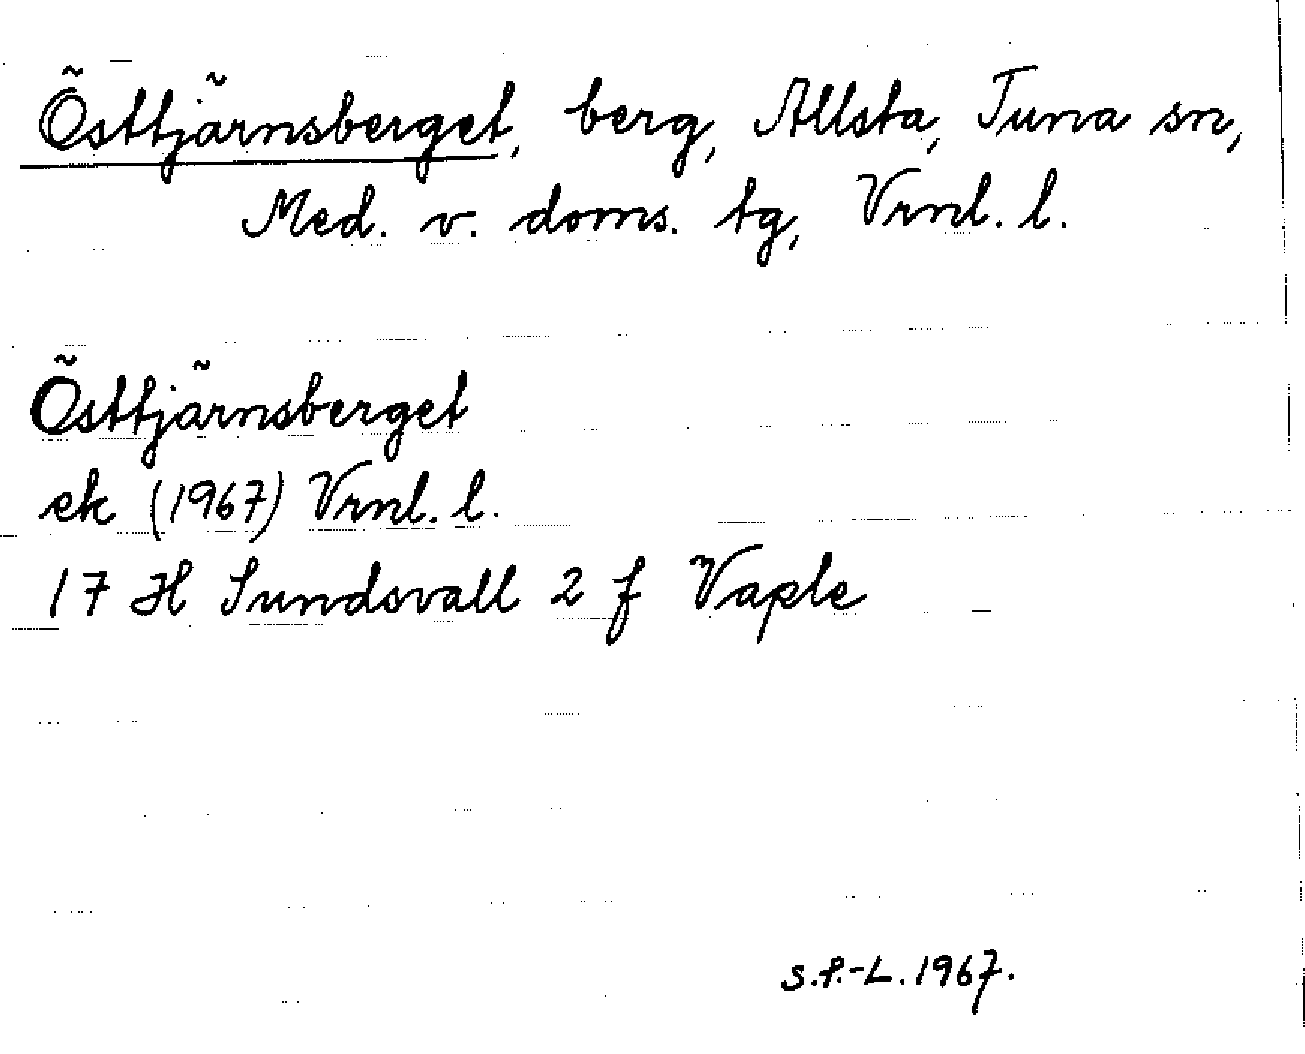 Östtjärnsberget, berg, Allsta, Tuna sn,
Med. v. doms. tg, Vrnl. l.
Östtjärnsberget
ek (1967) Vrnl. l.
17 H Sundsvall 2 f Vaple
S.P.-L. 1967.